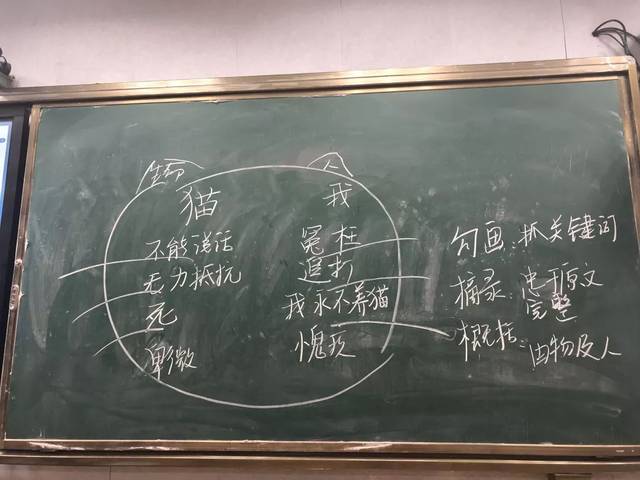 生命
人
猫
我
不能说话
无力抵抗
死
卑微
冤枉
追打
我永不养猫
愧疚
勾画:抓关键词
摘录:忠于原文
完整
概括:由物及人